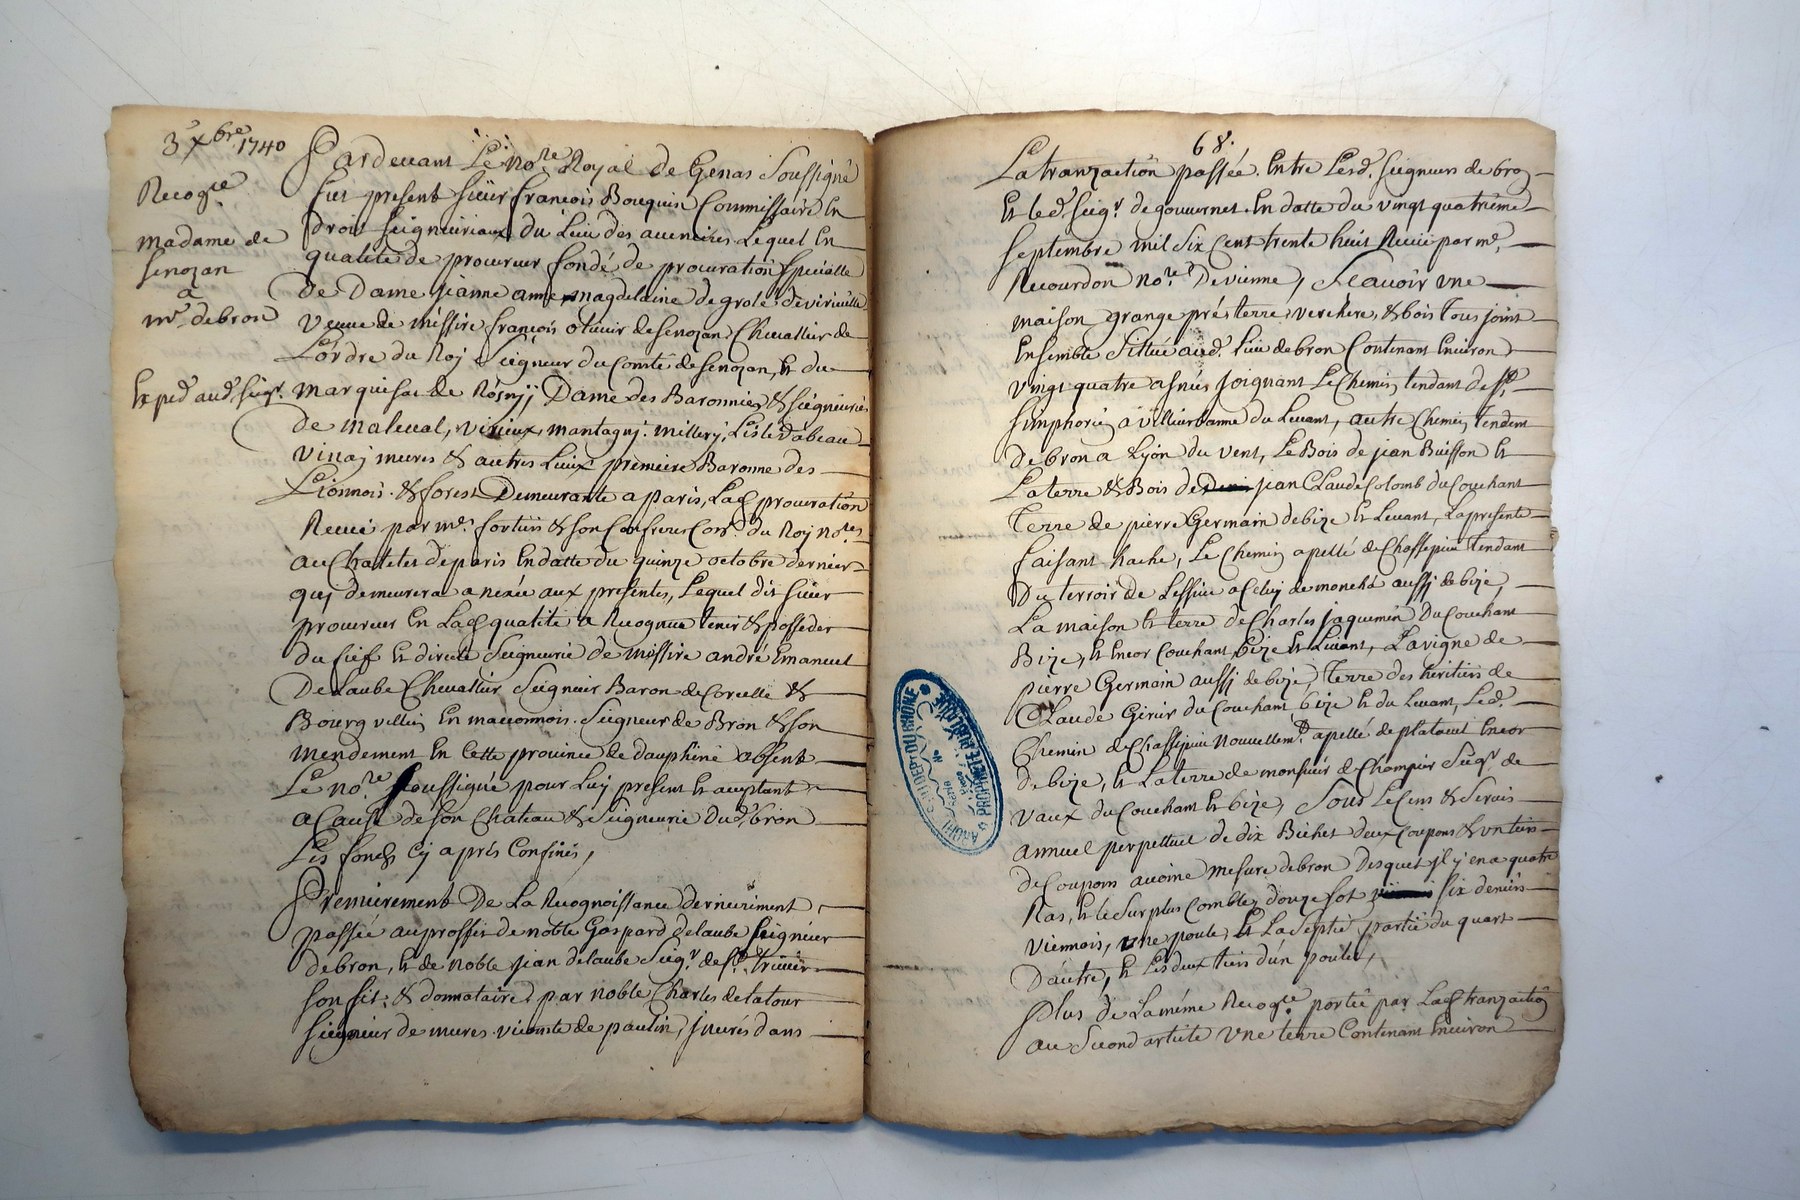 3e xbre 1740
Recogce
Madame de
Senozan
a
mr debron
Expié aud. seigr
Pardevant Le nore Royal de Genas Soussigné
fut present sieur françois Bouquin Commissaire En
droits seigneuriaux du Lieu des avenires Lequel En
qualité de procureur fondé de procuration specialle
de Dame jeanne anne magdelaine de grole devirieville
veuve de messire françois olivier deSenozan Chevallier de
Lordre du Roy Seigneur du Comté deSenozan, Et du
marquisat de Rosnyj Dame des Baronnies & seigneuries
de maleval, virieux, montagnj. millerj, Lisle dabeau
vinaj mures & autres Lieux, premiere Baronne des
Lionnois & forest Demeurante a paris, Lad. procuration
Reçue par me. fortier & son Confrere Conr. du Roy nores
au Chatelet deparis En datte du quinze octobre dernier
quj demeurera anexée aux presentes, Lequel dit sieur
procureur En Lad. qualité a Recognu tenir & posseder
du fief Et directe Seigneurie de Messire andré Emanuel
DeLaube Chevallier Seigneur Baron de Corcelle &
Bourg villein En maconnois. Seigneur de Bron & son
mendement En Cette province de dauphiné absent
Le nore soussigné pour Luj present Et acceptant
a Cause de son Chateau & Seigneurie Dud. bron
Les fonds Cy aprés Confinés,
Premierement De La Recognoissance dernierement
passée au proffit de noble Gaspard delaube seigneur
debron, Et de noble jean delaube Seigr. de st. trivier
son fils & donnataire, par noble Charles delatour
seigneur de mures vicomte de paulin, jnserés dans
68.
La tranzaction passée Entre Lesd. seigneurs de bron
Et led. seigr. de gouvernet En datte du vingt quatrieme
septembre mil six cent trente huit Reçue par me.
Recourdon nore. De vienne, Scavoir une
maison grange pré, terre, verchere, & bois tous joint
Ensemble sittué aud. Lieu debron Contenant Environ
vingt quatre asnées joignant Le Chemin tendant de st.
simphorien a villeurbanne du Levant, autre Chemin tendent
de bron a Lyon du vent, Le Bois de jean Buisson Et
La terre & Bois de jean Claude Colomb du Couchant
Terre de pierre Germain debize Et Levant, La presente
faisant hache, Le Chemin apellé de Chassepine tendant
Du terroir de Lessine a Celuj de moncha aussj de bize,
La maison Et terre de Charles jaquemin Du Couchant
Bize, Et Encor Couchant, bize Et Levant, La vigne de
pierre Germain aussj de bize, Terre des heritiers de
Claude Girier du Couchant bize Et du Levant, Led.
Chemin de Chassepine nouvellemt. apellé de platanet Encor
de bize, Et La terre de monsieur de Champier Seigr. de
vaux du Couchant Et bize, Sous Le Cens & Servis
annuel perpettuel de dix Bichet deux, Coupons & un tiers
de Coupon avoine mesure debron Desquels jl y en a quatre
Ras, Et le surplus Combles, douze sol six deniers
viennois, une poule, Et La septie. partie du quart
Dautre, Et Les deux tiers d'un poulet,
Plus de La même Recogce. portée par Lad. tranzaction
au second article une terre Contenant Environ
ARCHIVES DU DEPT DU RHONE
PROPRIETE PUBLIQUE